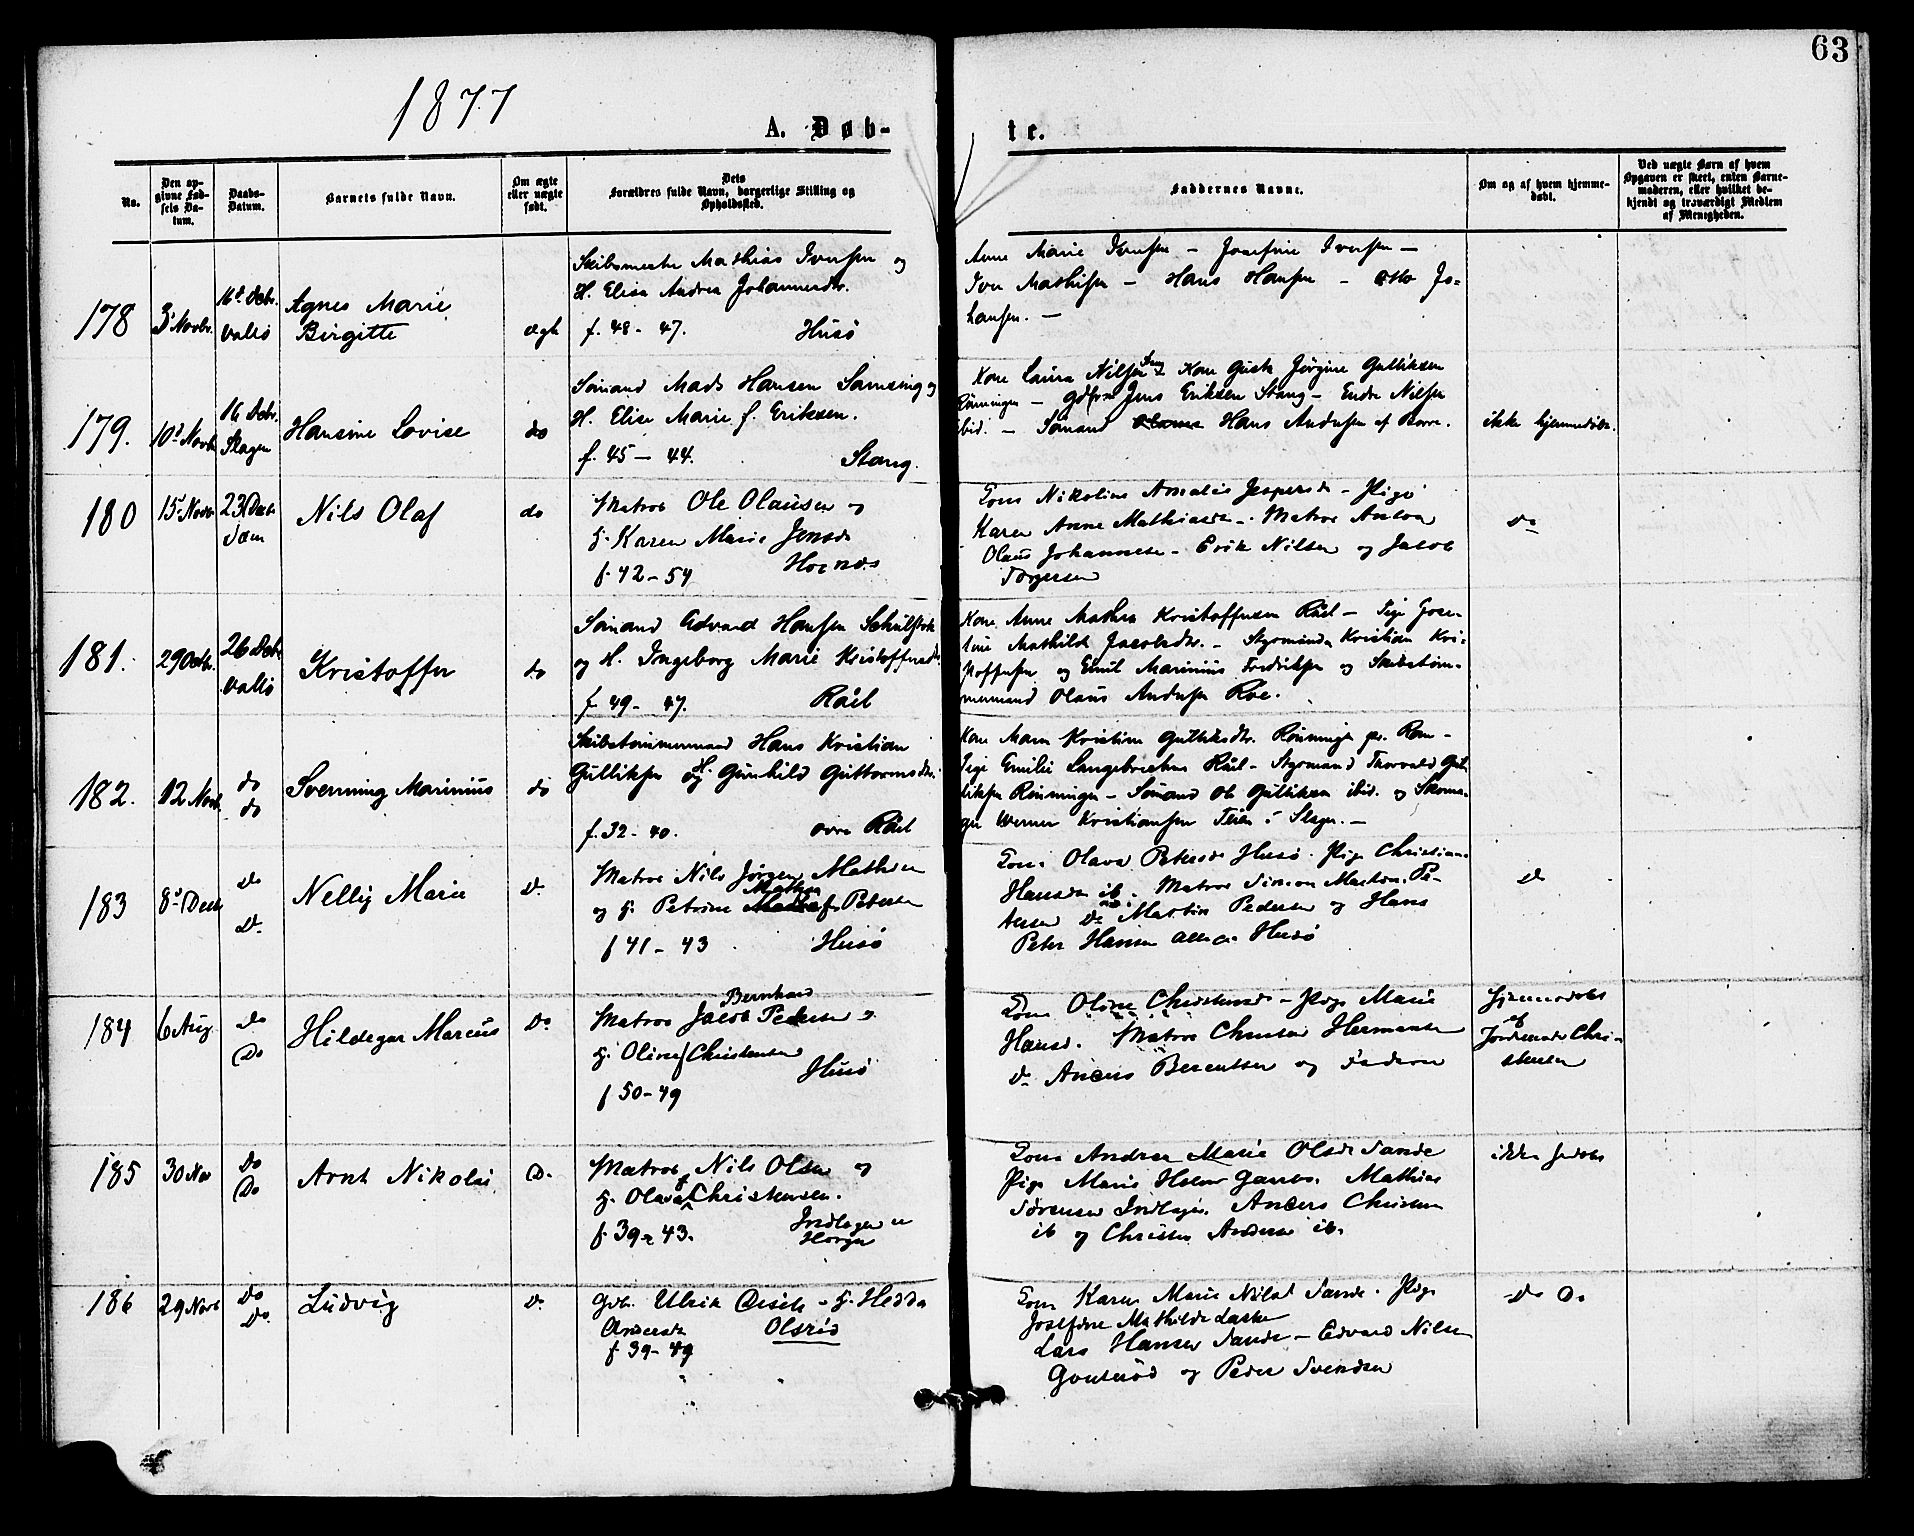 63
1877
A. Døb-
te.
No.
Den op-
givne Fød-
sels Da-
tum.
Daabs-
Datum.
Barnets fulde Navn.
Om ægte
eller uægte
født.
Dets
Forældres fulde Navn, borgerlige Stilling og
Opholdssted.
Faddernes Navne.
Om og af hvem hjemme-
døbt.
Ved uægte Børn af hvem
Opgaven er skeet, enten Barne-
moderen, eller hvilket be-
kjendt og troværdigt Medlem
af Menigheden.
178
3 Novbr.
16 Debr.
Vallø
Agnes Marie
Birgitte
ægte
Skibsmester Mathias Iversen og
H. Elise Andrea Johannesdtr.
f. 48 - 47. Husø
Anne Marie Iversen - Josefine Iversen -
Iver Mathisen - Hans Hansen - Otto Jo-
hansen. -
179.
10 Novbr.
16 Debr.
Slagen
Hansine Lovise
do
Sømand Mads Hansen Samsing og
H. Elise Marie f. Eriksen.
f. 45 - 44. Stang.
Kone Laura Nilsen Kone Jørgine Gulliksen
Rønningen - Jens Eriksen Stang - Endre Nilsen
ibid. - Sømand Hans Andersen af Borre.
ikke hjemmedøbt.
180
15 Novbr.
23 Decbr
Sem
Nils Olaf
do
Matros Ole Olausen og
H. Karen Marie Jensdr
f. 42 - 54 Hornæs
Gom Nikoline Amalie Jespersdr - Pige
Karen Anne Mathiasdr - Matros Anton
Olaus Johannesen - Erik Nilsen og Jacob
Torgersen
Do
181.
29 Octbr.
26 Debr
Valløe
Kristoffer
do
Sømand Edvard Hansen
og H. Ingeborg Marie Kristoffersdr.
f. 49 - 47. Råel
Kone Anne Mathea Kristoffersen Råel - Pige Jose-
fine Mathilde Jacobsdtr. - Styrmænd Kristian Kri-
stoffersen og Emil Marinius Fredriksen og Skibstøm-
mermand Olaus Andersen Röe.
182.
12 Novb.
do
do
Svenning Marinius
do
Skibstømmermand Hans Kristian
Gulliksen og H. Gunhild Guttormsdtr.
f. 32 - 40. øvre Råel
Kone Maren Kristine Gulliksdtr. Rønningen
Pige Emilie Langebrekke Råel - Styrmand Thorvald Gul-
liksen Rønningen - Sømand Ole Gulliksen ibid. og Skoma-
ger Werner Kristiansen Teien i Slagen. -
183
8 Decb
Do
Do
Nelly Marie
Do
Matros Nils Jørgen Mathisen
og H. Petrine Mathea f. Petersen
f 41 - 43 Husø
Gom Olava Petersdr Husø. Pige Christiane
Hansdr ib. Matros Simon Martin Pe-
tersen Do Martin Pedersen og Hans
Peter Hansen alle a Husø
Do
184
6 Aug
Do
Do
Hildegar Marcus
Do
Matros Jacob Bernhard Pedersen og
H. Oline f. Christensen
f 50 - 49 Husø
Gom Oline Christensdr - Pige Marie
Hansdr. Matros Christen Hermansen
Do Anders Berentsen og Faderen
Hjemmedøbt
af
Jordemoder Chri-
stensen
185
30 Nov
Do
Do
Arnt Nikolai
Do
Matros Nils Olsen og
H. Olava f. Christensen.
f. 39 - 43. Indlagen
Gom Andrea Marie Olsdr Sande
Pige Marie Mathias
Sørensen Indlagen. Anders Christensen
ib og Christen Andersen ib.
ikke hjdøbt
186
29 Novb
Do
Do
Ludvig
Do
Gdb. Ulrik og H. Hedda
Andersdr Olsrød
f 39 - 49
Gom Karen Marie Nilsd Sande. Pige
Josefine Mathilde
Lars Hansen Sande - Edvard Nilsen
Gonterød og Peder Svendsen
Do Do